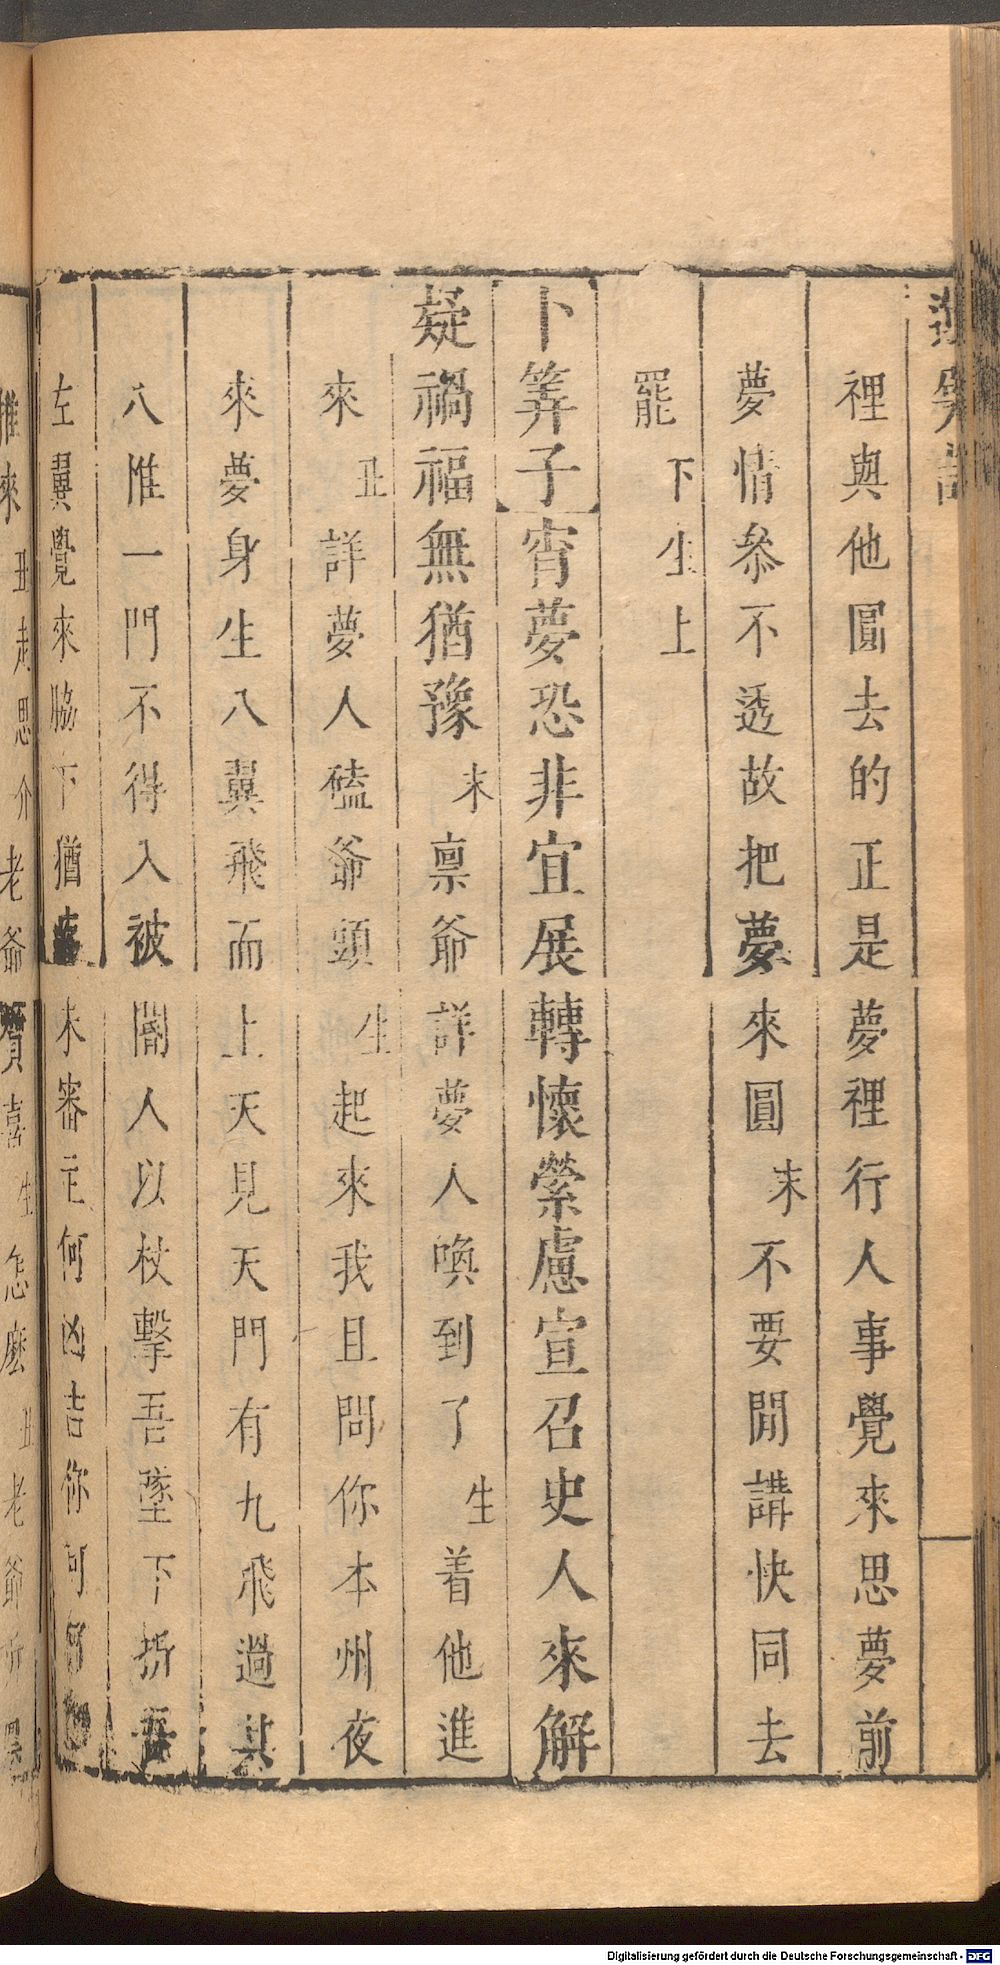 裡與他圓去的正是夢裡行人事覺來思夢前
夢情叅不透故把夢來圓末不要閒講快同去
罷下生上
卜筭子宵夢恐非宜展轉懷縈慮宣召史人來解
疑禍福無猶豫末禀爺詳夢人喚到了生着他進
來丑詳夢人磕爺頭生起來我且問你本州夜
來夢身生八翼飛而上天見天門有九飛過其
八惟一門不得入被閽人以杖擊吾墜下折吾
左翼覺來脇下猶痛未審主何凶吉你可
推來丑起思介老爺賀喜生怎麽丑老爺
Digitalisierung gefördert durch die Deutsche Forschungsgemeinschaft - DFG